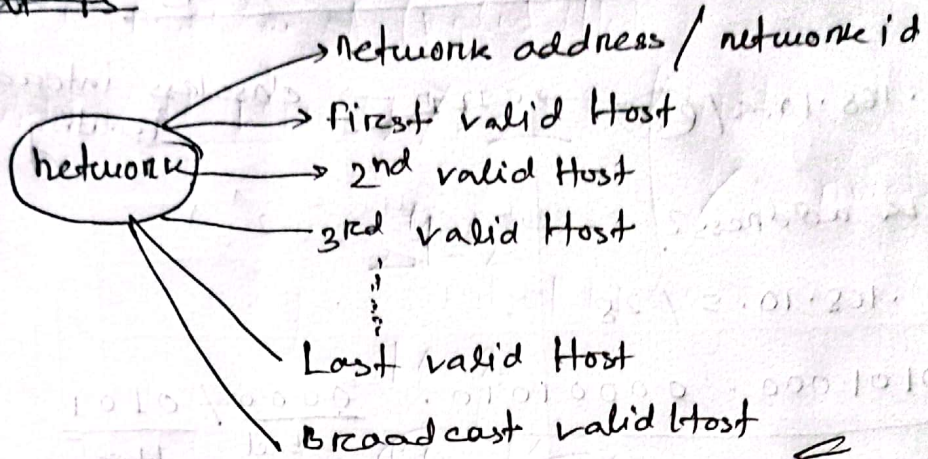 network address / network id
first valid Host
network
2nd valid Host
3rd valid Host
Last valid Host
Broadcast valid Host